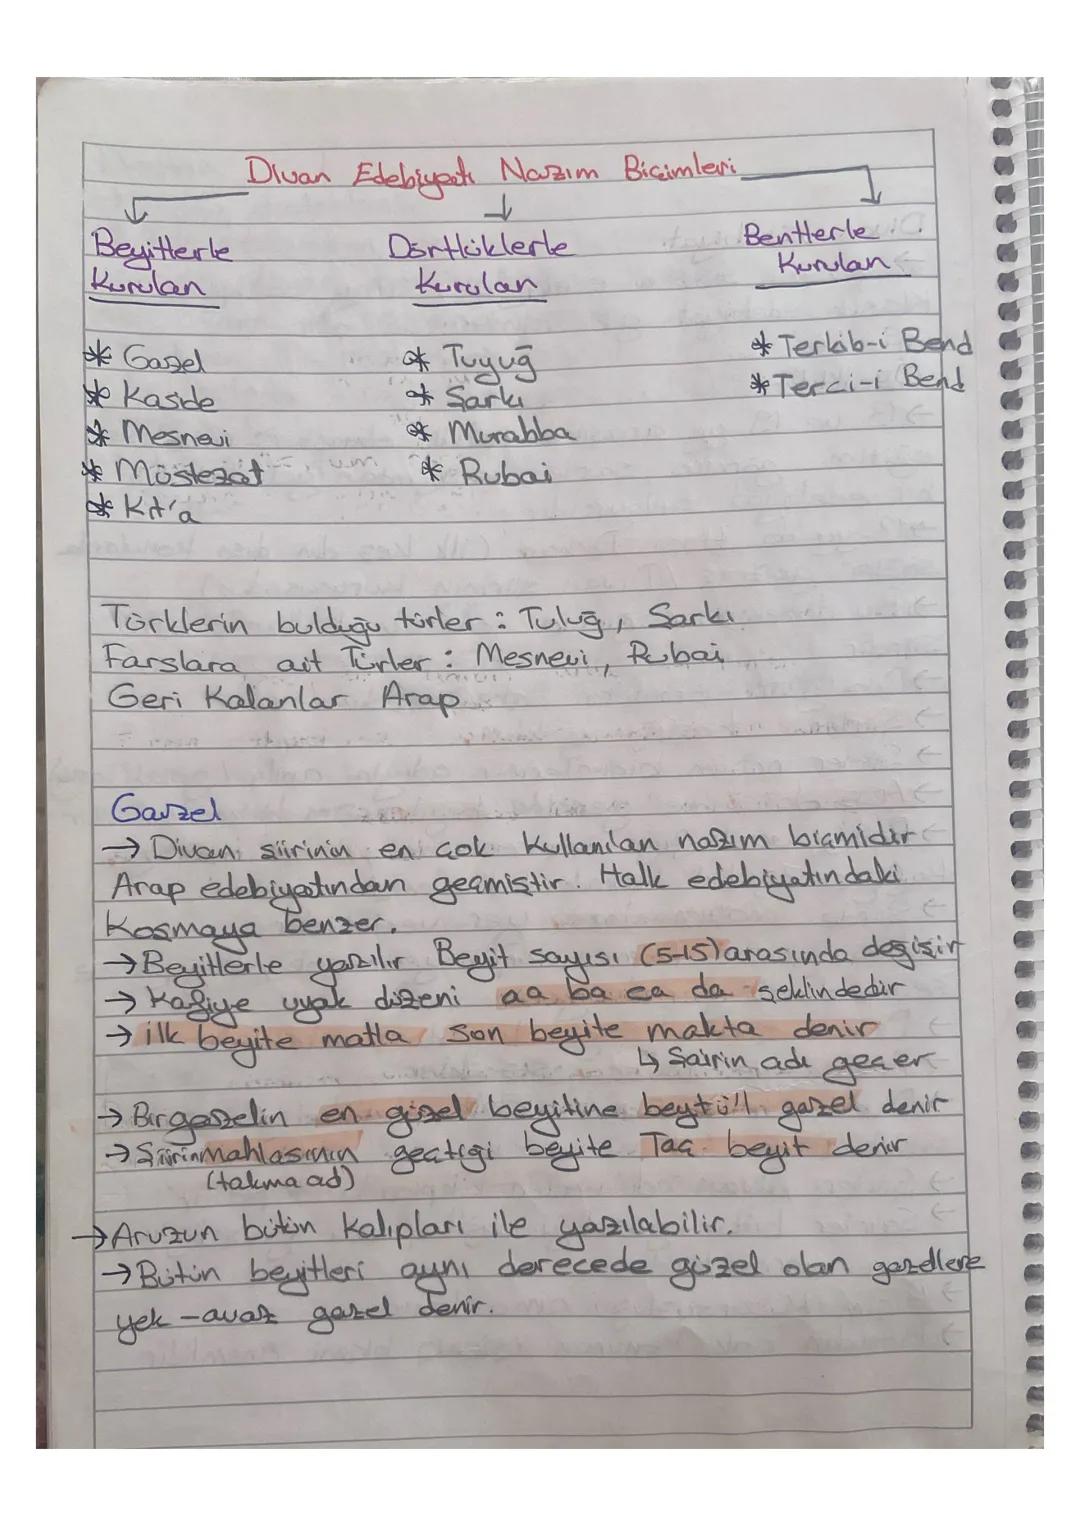 Divan Edebiyatı Nazım Biçimleri
Beyitlerle
Kurulan
Dörtlüklerle
Kurulan
Bentlerle
Kurulan
* Gazel
* Kaside
* Mesnevi
* Müstezat
* Kıt'a
* Tuyuğ
* Şarkı
* Murabba
* Rubai
* Terkib-i Bend
* Terci-i Bend
Türklerin bulduğu türler : Tuluğ, Şarkı
Farslara ait Türler : Mesnevi, Rubai
Geri Kalanlar Arap
Gazel
→ Divan şiirinin en çok kullanılan nazım biçmidir
Arap edebiyatından geçmiştir. Halk edebiyatındaki
Koşmaya benzer.
→ Beyitlerle yazılır Beyit sayısı (5-15) arasında değişir
→ Kafiye uyak düzeni aa ba ca da şeklindedir
→ ilk beyite matla son beyite makta denir
↳ Şairin adı geçer
→ Bir gazelin en güzel beyitine beytü'l gazel denir
→ Şiirin mahlasının geçtiği beyite Taç beyit denir
(takma ad)
→ Aruzun bütün kalıpları ile yazılabilir.
→ Bütün beyitleri aynı derecede güzel olan gazellere
yek-avaz gazel denir.